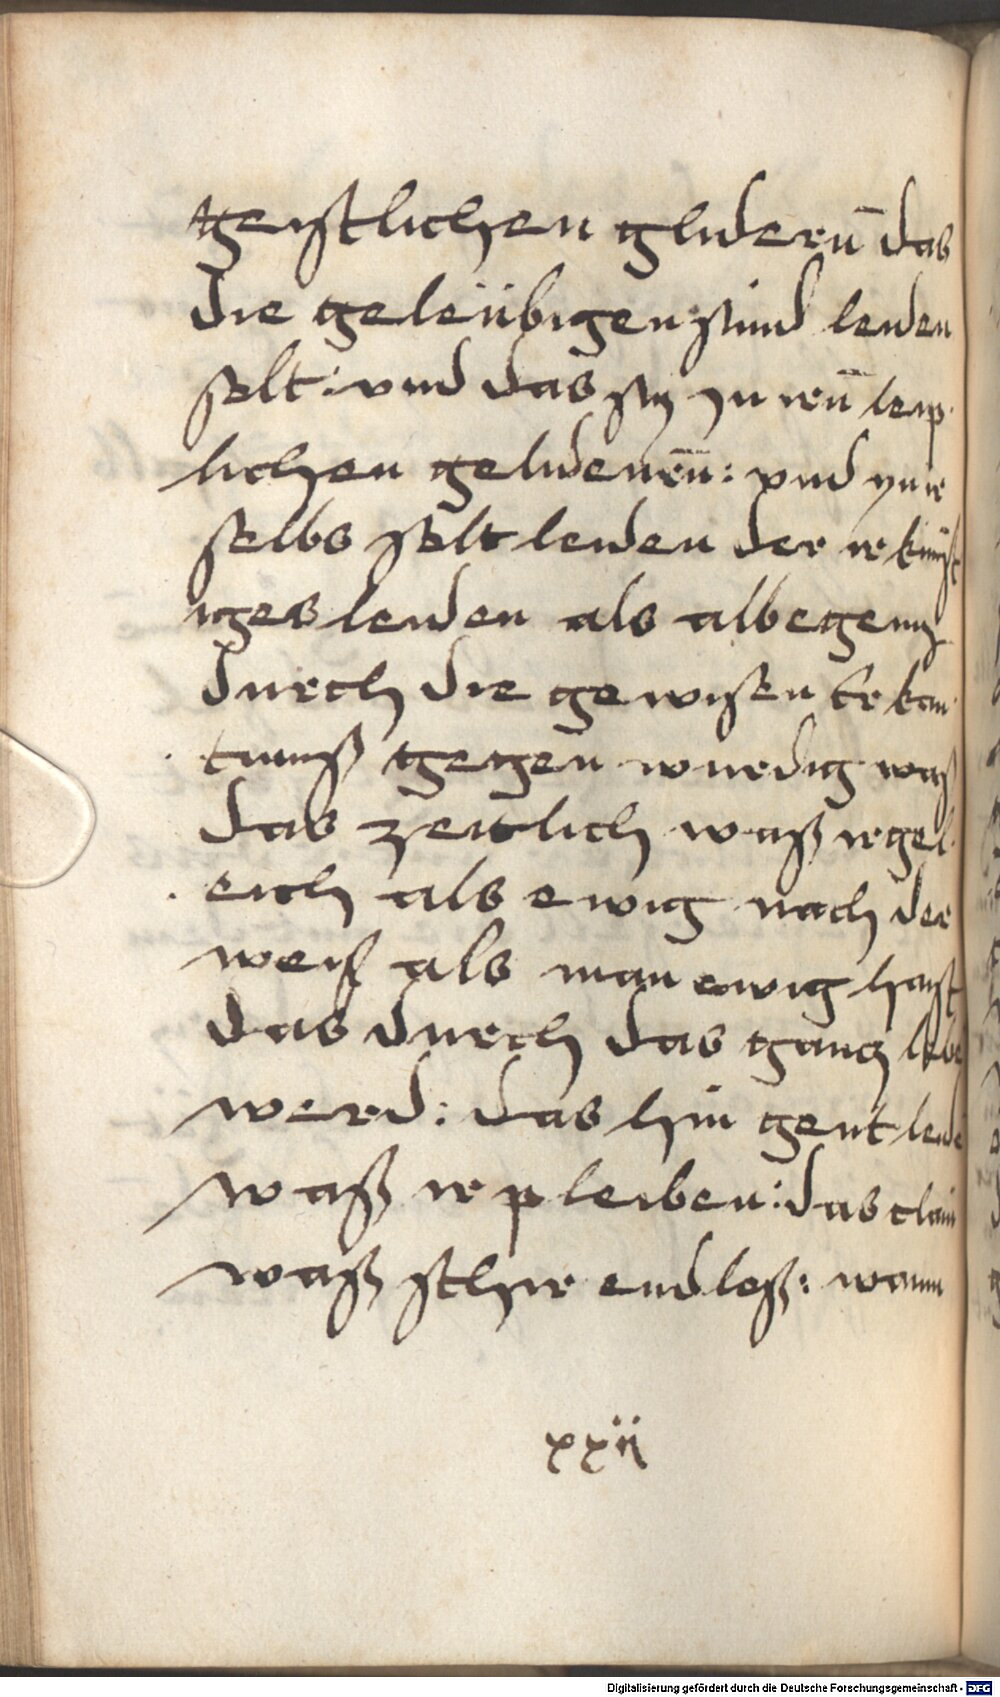 geistlichen glidern̄ das
die geleübigen sünd leiden
solt: vnd das sy yn irn̄ leip
lichen gelidenrn̄: vnd yn ir
selbs solt leiden der ir künft
iges leiden als albegeny
durch die gewisen erkan
tnuß gegen wurdig waß
das zeitlich waß ir gel
eich als ewig nach der
weiß als man ewig haist
das durch das gancz leben
werd: das hin gent leide
waß ir pleiben: das clain
waß sthir endloß: wann
xxii
Digitalisierung gefördert durch die Deutsche Forschungsgemeinschaft - DFG